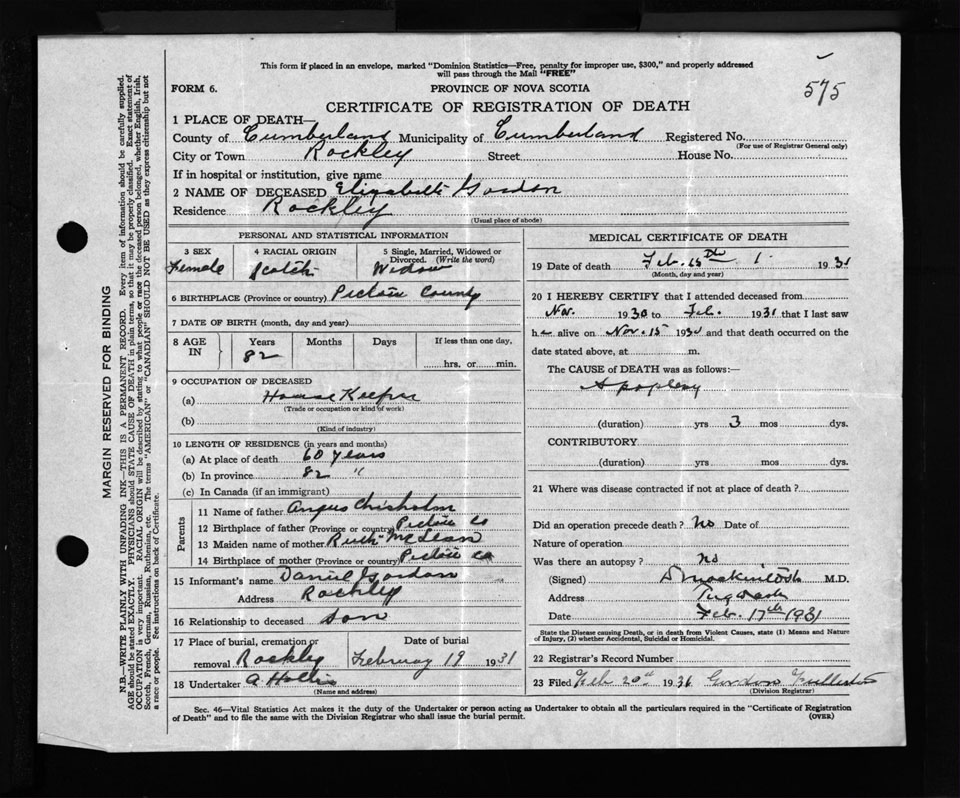 This form if placed in an envelope, marked "Dominion Statistics—Free, penalty for improper use, $300," and properly addressed
will pass through the Mail "FREE"
575
FORM 6.
PROVINCE OF NOVA SCOTIA
CERTIFICATE OF REGISTRATION OF DEATH
1 PLACE OF DEATH—
County of Cumberland Municipality of Cumberland Registered No.
(For use of Registrar General only)
City or Town Rockley Street House No.
If in hospital or institution, give name
2 NAME OF DECEASED Elizabeth Gordon
Residence Rockley
(Usual place of abode)
PERSONAL AND STATISTICAL INFORMATION
3 SEX Female
4 RACIAL ORIGIN Scotch
5 Single, Married, Widowed or Divorced. (Write the word) Widow
6 BIRTHPLACE (Province or country) Pictou County
7 DATE OF BIRTH (month, day and year)
8 AGE IN Years Months Days If less than one day,
82 hrs. or min.
9 OCCUPATION OF DECEASED
(a) House Keeper
(Trade or occupation or kind of work)
(b)
(Kind of industry)
10 LENGTH OF RESIDENCE (in years and months)
(a) At place of death 60 years
(b) In province 82 "
(c) In Canada (if an immigrant)
Parents
11 Name of father Angus Chisholm
12 Birthplace of father (Province or country) Pictou Co
13 Maiden name of mother Ruth McLean
14 Birthplace of mother (Province or country) Pictou Co
15 Informant's name Daniel Gordon
Address Rockley
16 Relationship to deceased Son
17 Place of burial, cremation or removal Rockley
Date of burial February 19 1931
18 Undertaker A Hollis
(Name and address)
MEDICAL CERTIFICATE OF DEATH
19 Date of death Feb. 15th 1931
(Month, day and year)
20 I HEREBY CERTIFY that I attended deceased from
Nov. 1930 to Feb. 1931 that I last saw
her alive on Nov. 15 1930 and that death occurred on the
date stated above, at m.
The CAUSE of DEATH was as follows:—
Apoplexy
(duration) yrs 3 mos dys.
CONTRIBUTORY
(duration) yrs. mos. dys.
21 Where was disease contracted if not at place of death?
Did an operation precede death? No Date of
Nature of operation
Was there an autopsy? No
(Signed) Mackintosh M.D.
Address Pugwash
Date Feb. 17th 1931
State the Disease causing Death, or in death from Violent Causes, state (1) Means and Nature
of Injury, (2) whether Accidental, Suicidal or Homicidal.
22 Registrar's Record Number
23 Filed Feb 20th 1931 Gordon
(Division Registrar)
Sec. 46—Vital Statistics Act makes it the duty of the Undertaker or person acting as Undertaker to obtain all the particulars required in the "Certificate of Registration
of Death" and to file the same with the Division Registrar who shall issue the burial permit.
(OVER)
MARGIN RESERVED FOR BINDING
N.B.—WRITE PLAINLY WITH UNFADING INK—THIS IS A PERMANENT RECORD. Every item of information should be carefully supplied.
AGE should be stated EXACTLY. PHYSICIANS should STATE CAUSE OF DEATH in plain terms, so that it may be properly classified. Exact statement of
OCCUPATION is very important. RACIAL ORIGIN will be described by stating to what people or race the deceased person belonged, whether English, Irish,
Scotch, French, German, Russian, Ruthenian, etc. The terms "AMERICAN" or "CANADIAN" SHOULD NOT BE USED as they express citizenship but not
a race or people. See instructions on back of Certificate.